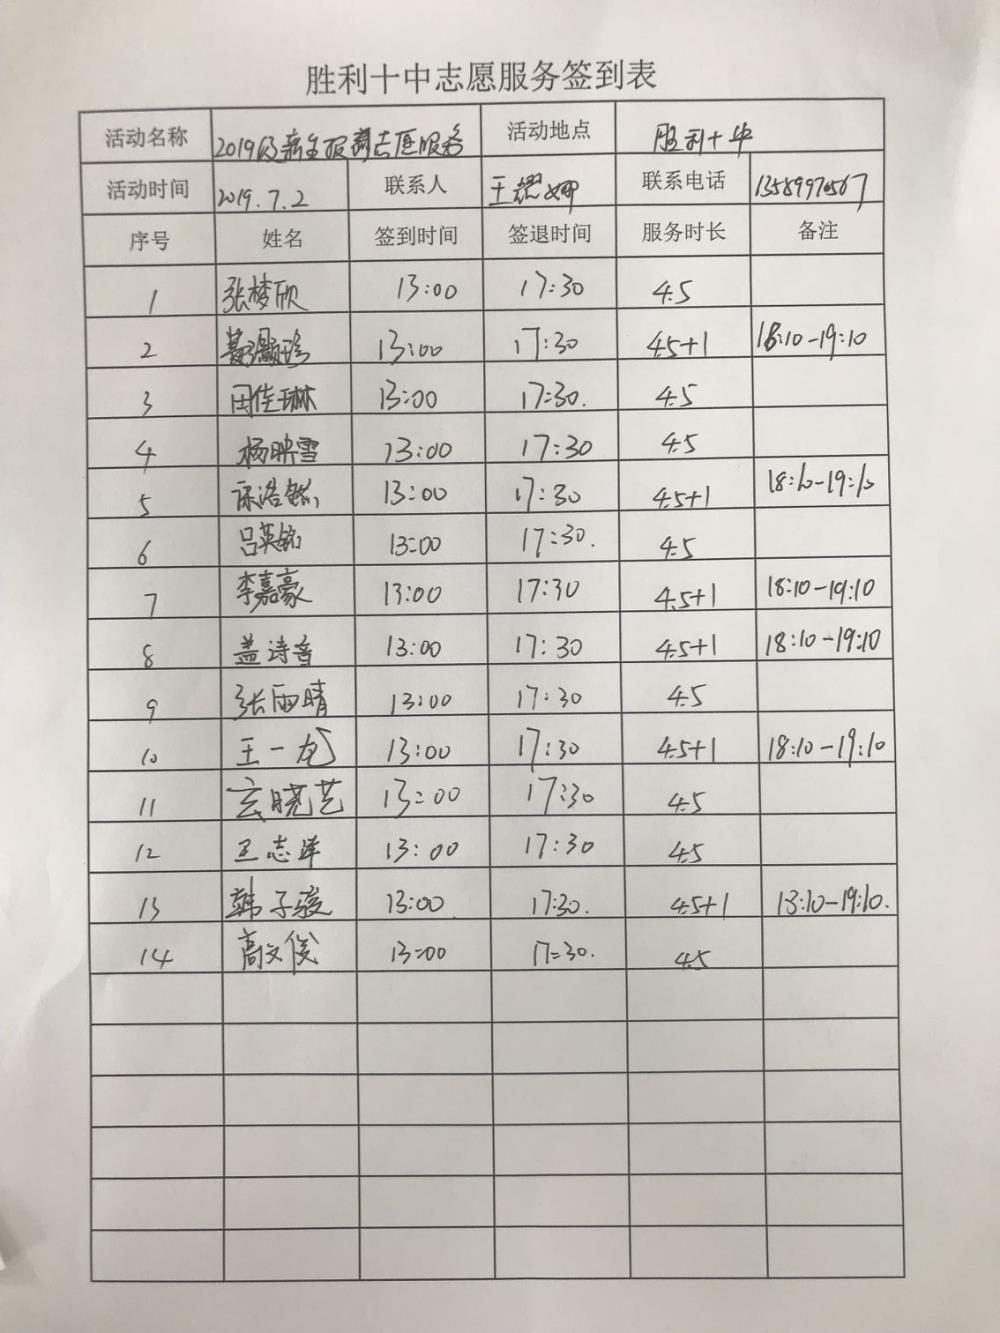 胜利十中志愿服务签到表
活动名称 2019级新生报到志愿服务 活动地点 胜利十中
活动时间 2019.7.2 联系人 王 娜 联系电话 13589970567
序号 姓名 签到时间 签退时间 服务时长 备注
1 张梦欣 13:00 17:30 4.5
2 13:00 17:30 4.5+1 18:10-19:10
3 田佳琳 13:00 17:30. 4.5
4 杨映雪 13:00 17:30 4.5
5 浩 13:00 17:30 4.5+1 18:10-19:10
6 吕英铭 13:00 17:30. 4.5
7 李嘉豪 13:00 17:30 4.5+1 18:10-19:10
8 盖诗音 13:00 17:30 4.5+1 18:10-19:10
9 张雨晴 13:00 17:30 4.5
10 王一龙 13:00 17:30 4.5+1 18:10-19:10
11 玄晓艺 13:00 17:30 4.5
12 王志 13:00 17:30 4.5
13 韩子骏 13:00 17:30. 4.5+1 18:10-19:10.
14 高文俊 13:00 17:30. 4.5